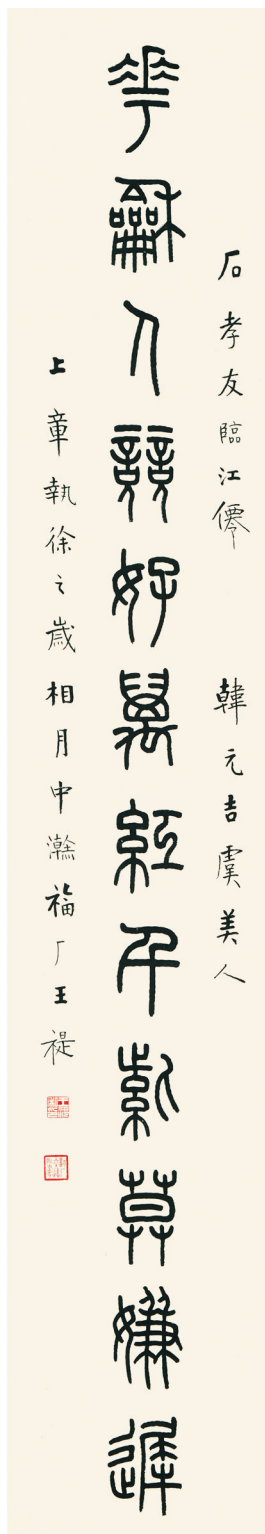 石孝友臨江僊 韓元吉虞美人
華龢人競好萬紅千紫莫嫌遲
上章執徐之歲相月中澣福厂王禔